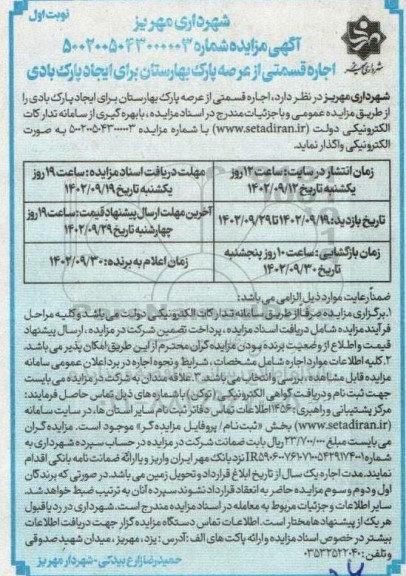 نوبت اول
شهرداری مهریز
آگهی مزایده شماره ۵۰۰۲۰۰۵۰۴۳۰۰۰۰۰۳
اجاره قسمتی از عرصه پارک بهارستان برای ایجاد پارک بادی
شهرداری مهریز
شهرداری مهریز در نظر دارد، اجاره قسمتی از عرصه پارک بهارستان برای ایجاد پارک بادی را
از طریق مزایده عمومی و با جزئیات مندرج در اسناد مزایده، با بهره گیری از سامانه تدارکات
الکترونیکی دولت (www.setadiran.ir) با شماره مزایده ۵۰۰۲۰۰۵۰۴۳۰۰۰۰۰۳ به صورت
الکترونیکی واگذار نماید.
زمان انتشار در سایت: ساعت ۱۲ روز یکشنبه تاریخ ۱۴۰۲/۰۹/۱۲
مهلت دریافت اسناد مزایده: ساعت ۱۹ روز یکشنبه تاریخ ۱۴۰۲/۰۹/۱۹
تاریخ بازدید: ۱۴۰۲/۰۹/۱۹ تا ۱۴۰۲/۰۹/۲۹
آخرین مهلت ارسال پیشنهاد قیمت: ساعت ۱۹ روز چهارشنبه تاریخ ۱۴۰۲/۰۹/۲۹
زمان بازگشایی: ساعت ۱۰ روز پنجشنبه تاریخ ۱۴۰۲/۰۹/۳۰
زمان اعلام به برنده: ۱۴۰۲/۰۹/۳۰
ضمناً رعایت موارد ذیل الزامی می باشد:
۱. برگزاری مزایده صرفاً از طریق سامانه تدارکات الکترونیکی دولت می باشد و کلیه مراحل
فرآیند مزایده شامل دریافت اسناد مزایده، پرداخت تضمین شرکت در مزایده، ارسال پیشنهاد
قیمت و اطلاع از وضعیت برنده بودن مزایده گران محترم از این طریق امکان پذیر می باشد.
۲. کلیه اطلاعات موارد اجاره شامل مشخصات، شرایط و نحوه اجاره در برد اعلان عمومی سامانه
مزایده قابل مشاهده، بررسی و انتخاب می باشد. ۳. علاقه مندان به شرکت در مزایده می بایست
جهت ثبت نام و دریافت گواهی الکترونیکی (توکن) با شماره های ذیل تماس حاصل فرمایند:
مرکز پشتیبانی و راهبری: ۱۴۵۶ اطلاعات تماس دفاتر ثبت نام سایر استان ها، در سایت سامانه
(www.setadiran.ir) بخش «ثبت نام / پروفایل مزایده گر» موجود است. مزایده گران
می بایست مبلغ ۲۳/۷۰۰/۰۰۰ ریال بابت ضمانت شرکت در مزایده در حساب سپرده شهرداری به
شماره نزد بانک مهر ایران واریز و یا ارائه ضمانت نامه بانکی اقدام
نمایند. مدت اجاره یک سال از تاریخ ابلاغ قرارداد و تحویل زمین می باشد. در صورتی که برندگان
اول و دوم و سوم مزایده حاضر به انعقاد قرارداد نشوند سپرده آنان به ترتیب ضبط خواهد شد.
سایر اطلاعات و جزئیات مربوط به معامله در اسناد مزایده مندرج است. شهرداری در رد یا قبول
هر یک از پیشنهادها مختار است. اطلاعات تماس دستگاه مزایده گزار جهت دریافت اطلاعات
بیشتر در خصوص اسناد مزایده و ارائه پاکت های الف: آدرس: یزد، مهریز، میدان شهید صدوقی
و تلفن: ۰۳۵۳۲۵۲۲۰۴۰
حمیدرضا زارع بیدکی - شهردار مهریز